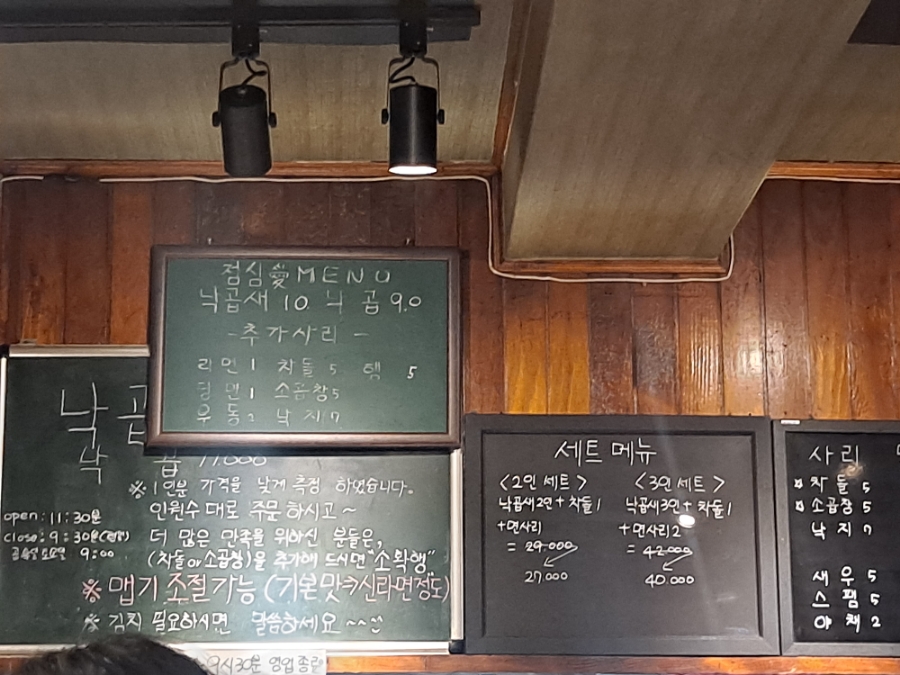 점심愛MENU
낙곱새 10. 낙 곱 9.0
-추가사리-
라면 1 차돌 5 햄 5
당면 1 소곱창 5
우동 2 낙지 7
낙
낙 곱 11.000
※ 1인분 가격을 낮게 측정 하였습니다.
인원수 대로 주문 하시고~
더 많은 만족을 위하신 분들은,
(차돌 or 소곱창)을 추가해 드시면 "소확행"
※ 맵기 조절가능 (기본맛⇒신라면정도)
※ 김치 필요하시면 말씀하세요 ~~
open: 11:30분
close: 9:30분
9:00
9시30분 영업종료
세트 메뉴
<2인 세트>
낙곱새2인 + 차돌1
+면사리
= 29.000
27.000
<3인 세트>
낙곱새3인 + 차돌1
+면사리2
= 42.000
40.000
사리
차돌 5
소곱창 5
낙지 7
새우 5
스팸 5
야채 2